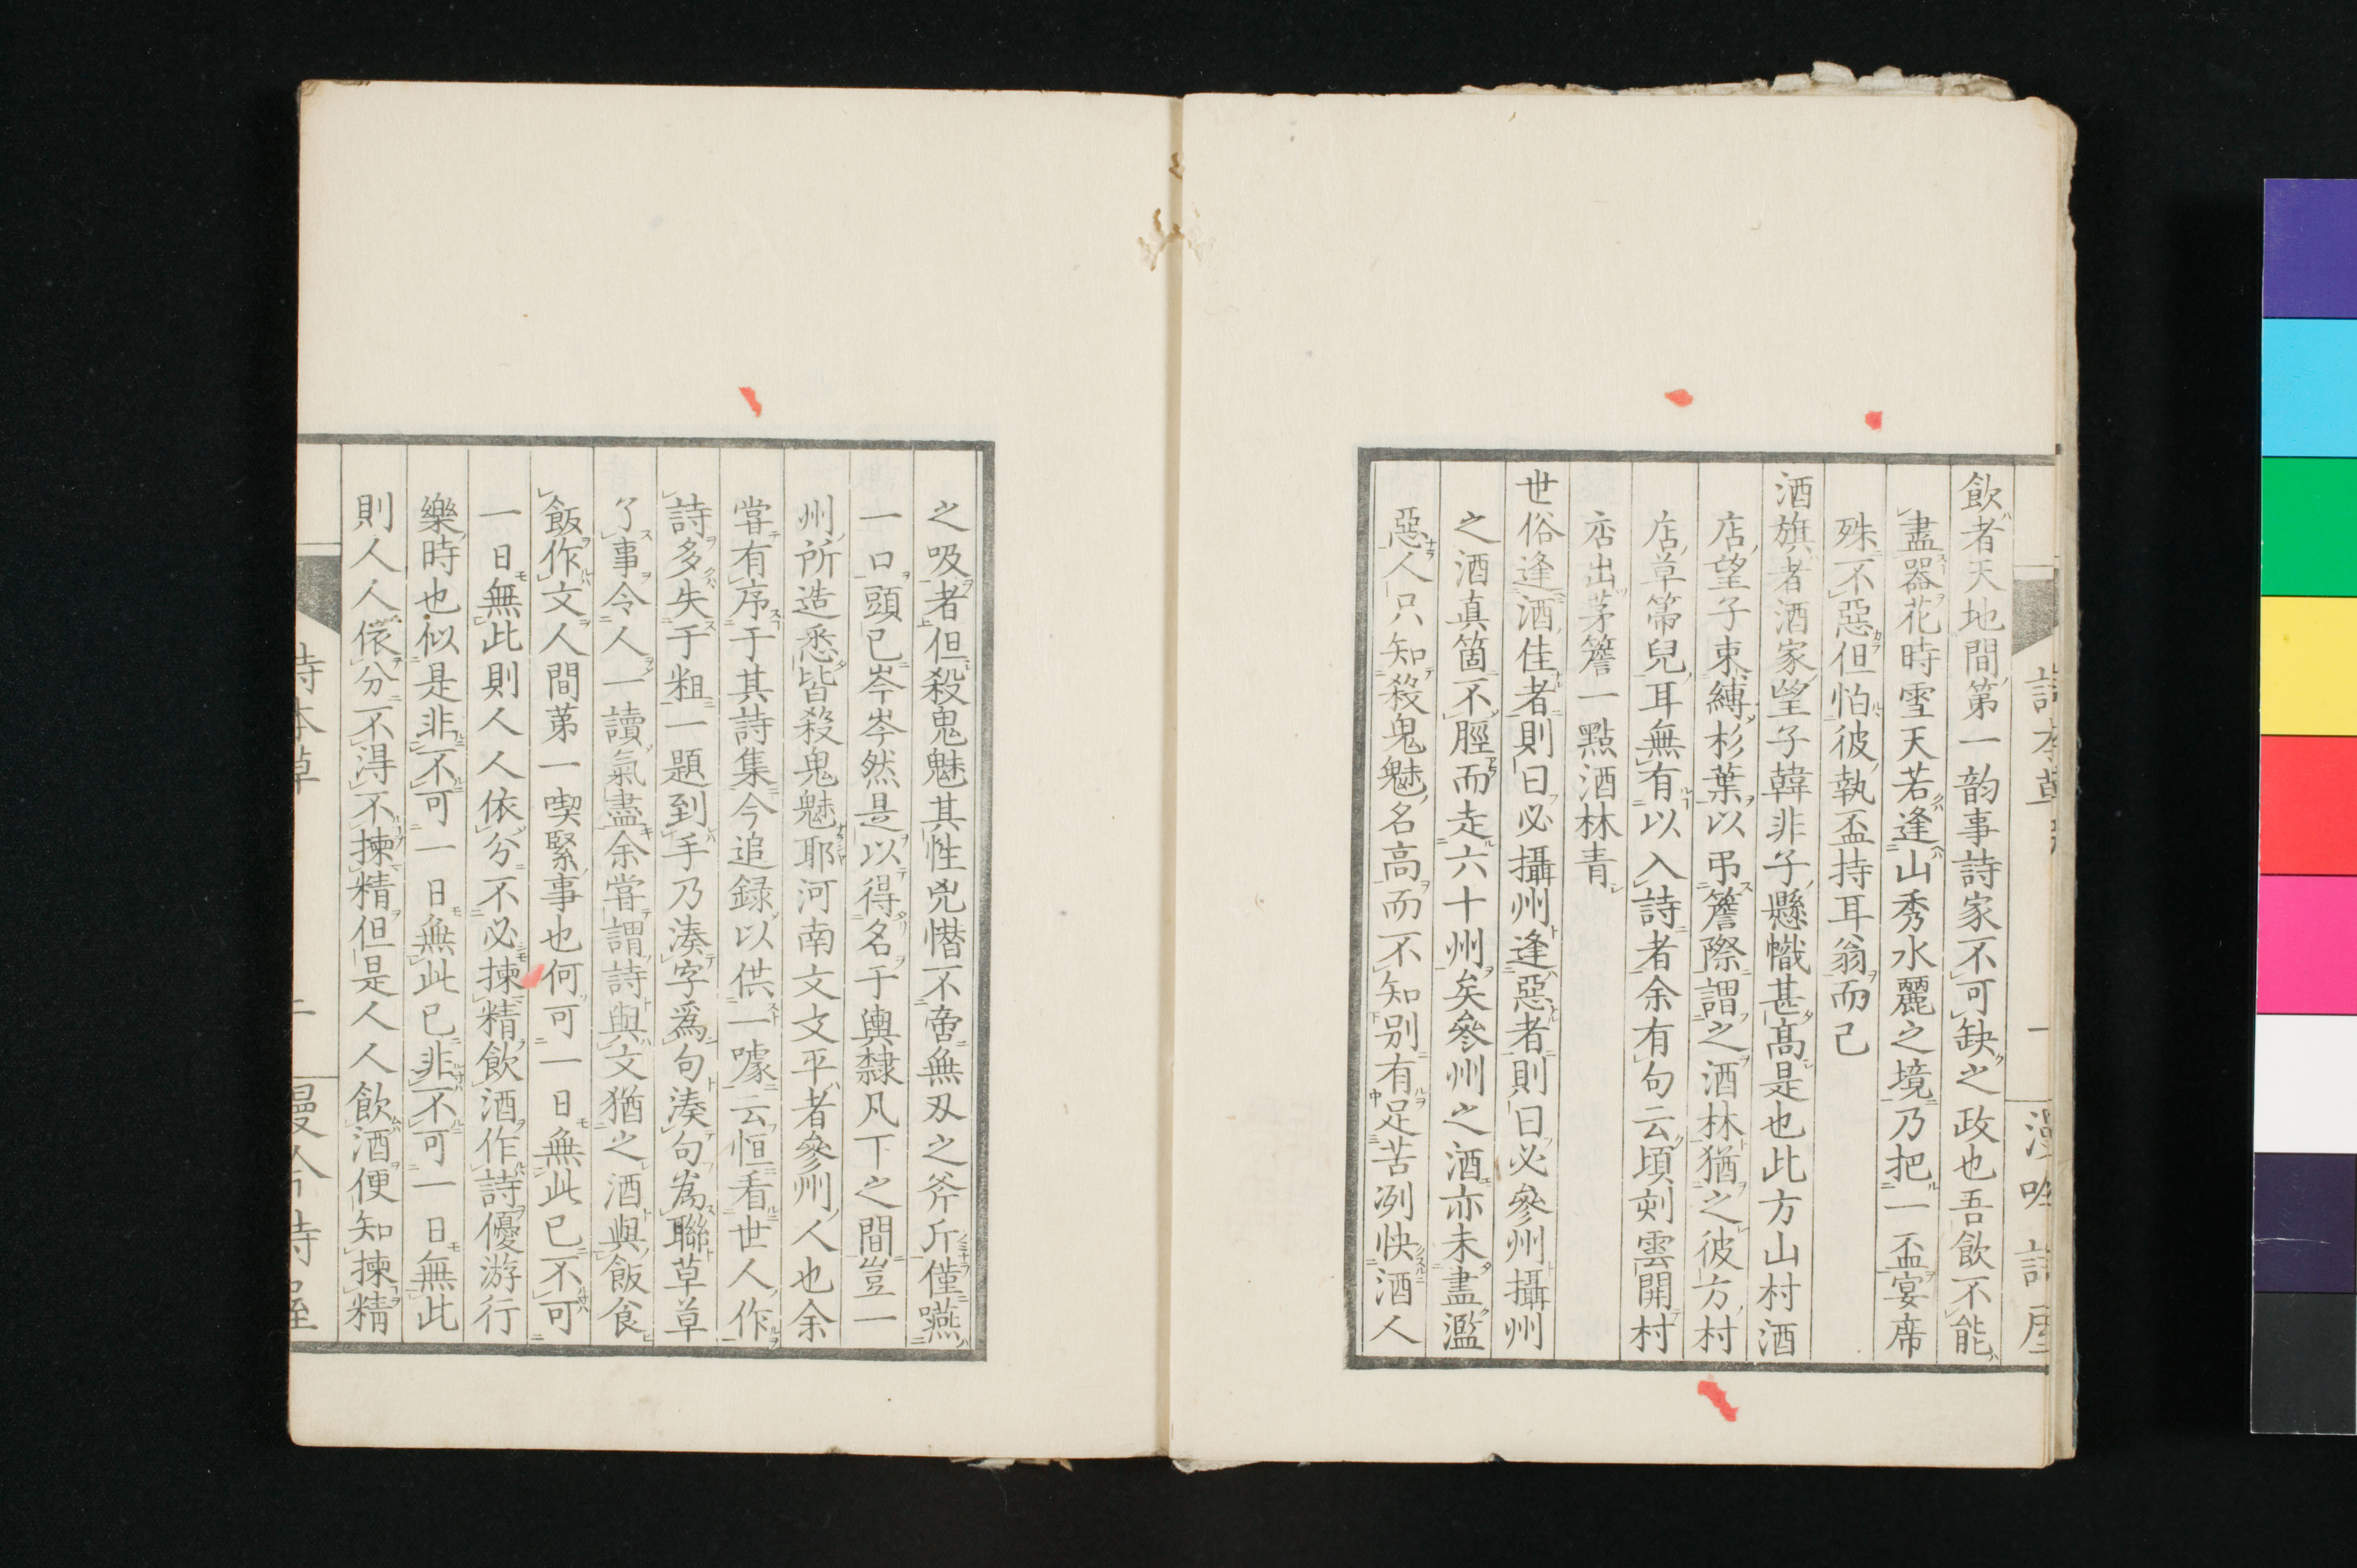 飲者天地間第一韵事詩家不可缺之政也吾飲不能
盡器花時雪天若逢山秀水麗之境乃把一盃宴席
殊不惡但怕彼執盃持耳翁而已
酒旗者酒家望子韓非子懸幟甚高是也此方山村酒
店望子束縛杉葉以弔簷際謂之酒林猶之彼方村
店草箒兒耳無有以入詩者余有句云頃刻雲開村
店出茅簷一點酒林青
世俗逢酒佳者則曰必攝州逢惡者則曰必參州攝州
之酒真箇不脛而走六十州矣參州之酒亦未盡濫
惡人只知殺鬼魅名高而不知別有足苦冽快酒人
之吸者但殺鬼魅其性兇憯不啻無刄之斧斤僅嚥
一口頭已岑岑然是以得名于輿隸凡下之間豈一
州所造悉皆殺鬼魅耶河南文文平者參州人也余
嘗有序于其詩集今追録以供一噱云恒看世人作
詩多失于粗一題到手乃湊字爲句湊句爲聯草草
了事令人一讀氣盡余嘗謂詩與文猶之酒與飯食
飯作文人間第一喫緊事也何可一日無此已不可
一日無此則人人依分不必揀精飲酒作詩優游行
樂時也似是非不可一日無此已非不可一日無此
則人人依分不得不揀精但是人人飲酒便知揀精
詩本草
二